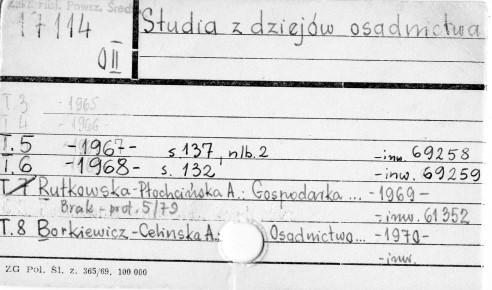 Zakł. Hist. Powsz. Śred
17114
Studia z dziejów osadnictwa
O II
T.3 -1965
T.4 -1966-
T.5 -1967- s 137, nlb. 2 -inw. 69258
T.6 -1968- s. 132 -inw. 69259
T.7 Rutkowska-Płachcińska A.: Gospodarka... -1969-
Brak - prot. 5/79 -inw. 61352
T.8 Borkiewicz-Celińska A.: Osadnictwo... -1970-
-inw.
ZG Pol. Śl. z. 365/69, 100 000